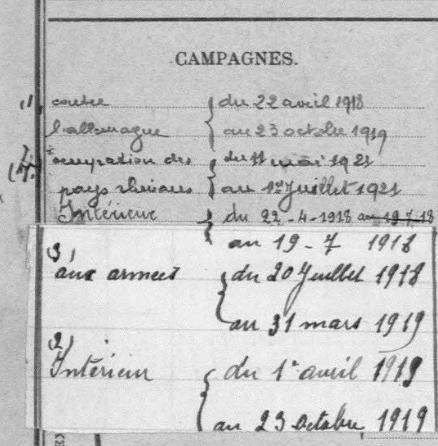 CAMPAGNES.
1) contre { du 22 avril 1918
l'allemagne au 23 octobre 1919
4° occupation des { du 11 mai 1921
pays rhénans au 1er Juillet 1921
Intérieur { du 22-4-1918 au 19 7 18
au 19-7 1918
3) aux armées { du 20 Juillet 1918
au 31 mars 1919
2) Intérieur { du 1er avril 1919
au 23 octobre 1919